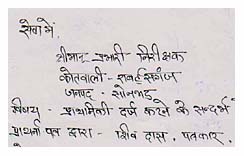 सेवा में,
श्रीमान प्रभारी निरीक्षक
कोतवाली - राबर्ट्सगंज
जनपद - सोनभद्र
विषय - प्राथमिकी दर्ज करने के सन्दर्भ में
प्रार्थना पत्र द्वारा - शिव दास, पत्रकार,